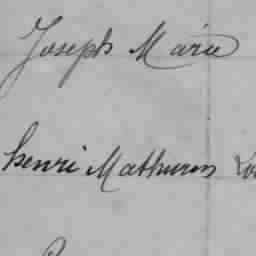 Joseph Marie
henri Mathurin